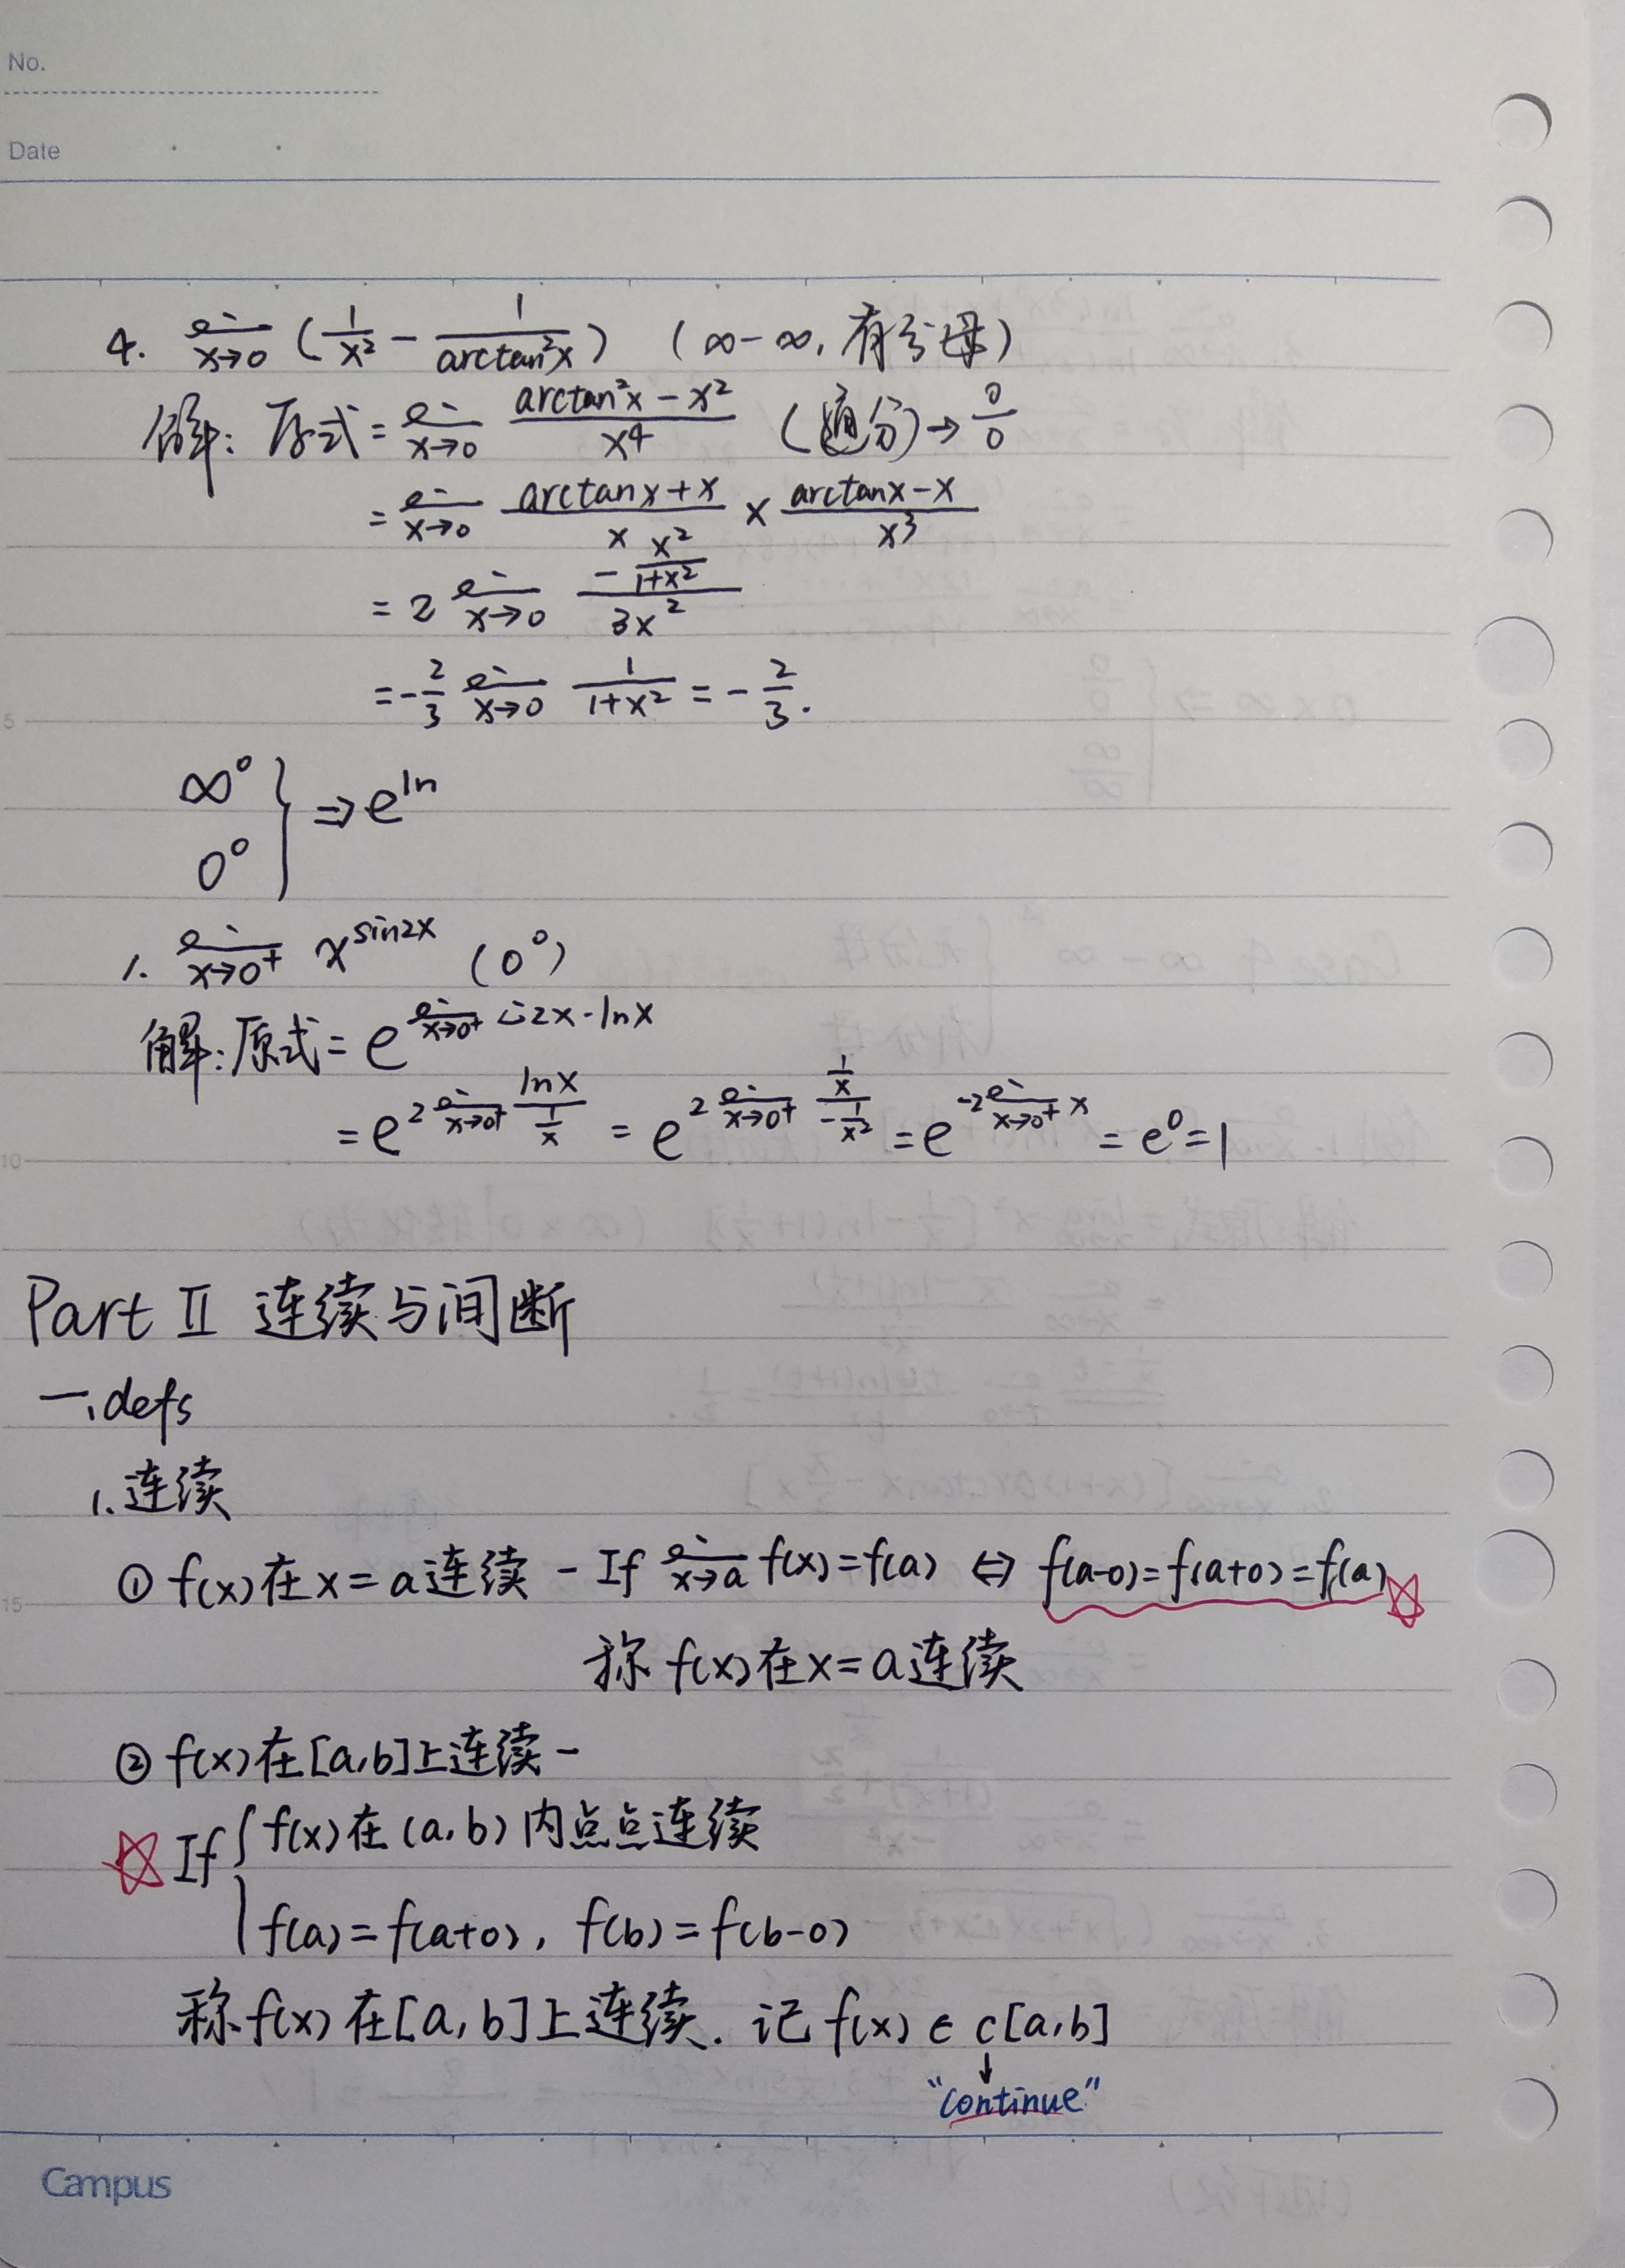 No.
Date
4. lim x→0 (1/x² − 1/arctan²x) (∞−∞, 有分母)
解: 原式 = lim x→0 (arctan²x − x²)/x⁴ (通分) → 0/0
= lim x→0 (arctanx + x)/x × (arctanx − x)/x³
= 2 lim x→0 (−x²/(1+x²))/(3x²)
= −2/3 lim x→0 1/(1+x²) = −2/3.
∞⁰
0⁰ } ⇒ e^ln
1. lim x→0⁺ x^sin2x (0⁰)
解: 原式 = e^(lim x→0⁺ 2x·lnx)
= e^(2 lim x→0⁺ lnx/(1/x)) = e^(2 lim x→0⁺ (1/x)/(−1/x²)) = e^(−2 lim x→0⁺ x) = e⁰ = 1
Part Ⅱ 连续与间断
一. defs
1. 连续
① f(x)在x=a连续 - If lim x→a f(x)=f(a) ⇔ f(a-0)=f(a+0)=f(a)
称 f(x)在x=a连续
② f(x)在[a,b]上连续 -
If { f(x)在(a,b)内点点连续
f(a)=f(a+0), f(b)=f(b-0)
称f(x)在[a,b]上连续. 记 f(x)∈c[a,b]
↓
"continue"
5
10
15
Campus